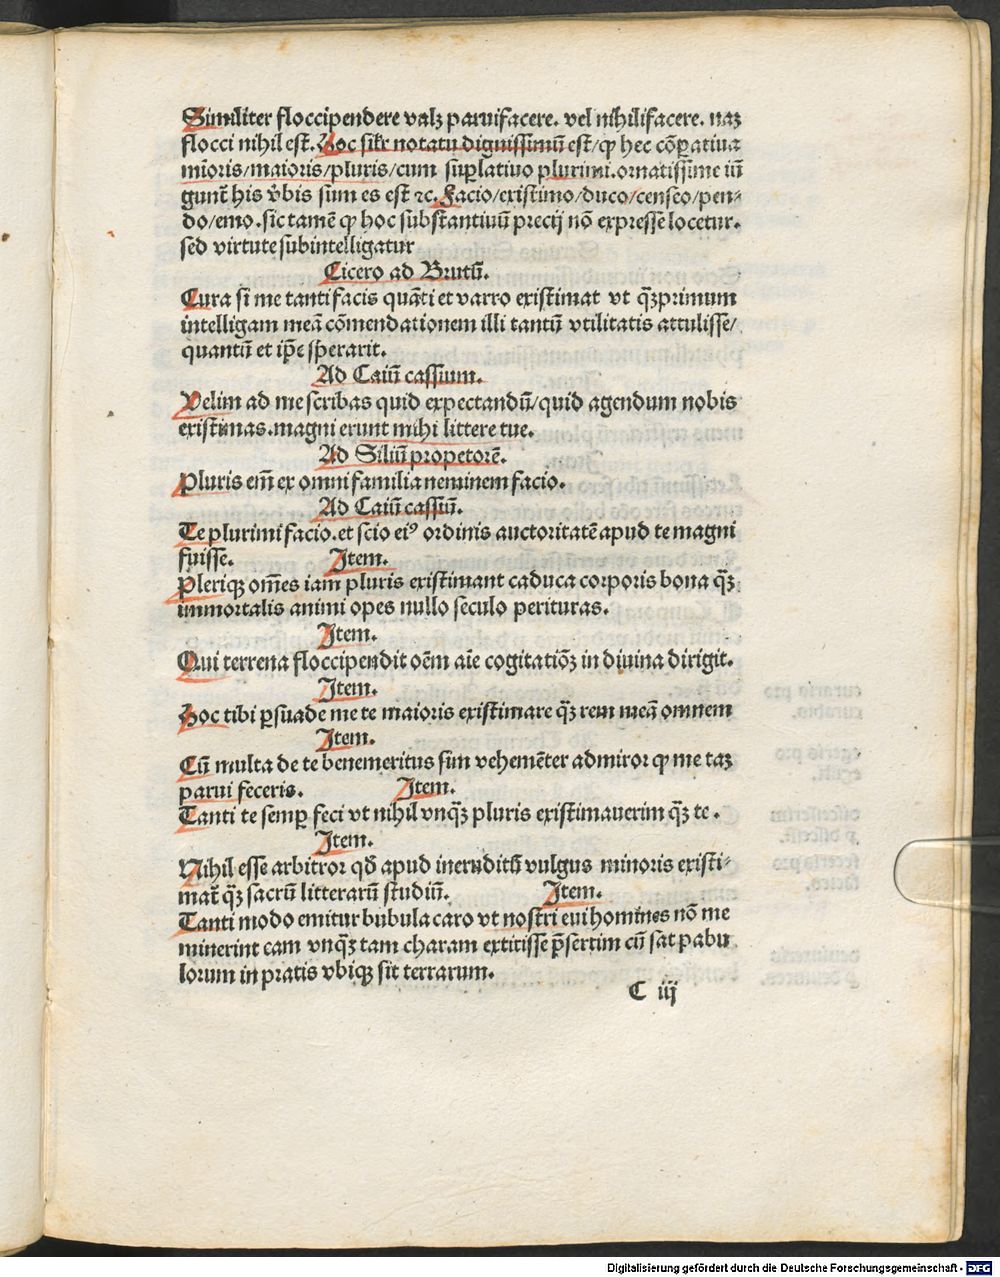 Similiter floccipendere valꝫ paruifacere. vel nihilifacere. naꝫ
flocci nihil est. Hoc siłr notatu dignissimū est/ꝙ hec cōꝑatiua
mīoris/maioris/pluris/cum suꝑlatiuo plurimi.ornatissime iū
gunt̄ his v̄bis sum es est ⁊c. Facio/existimo/duco/censeo/pen⸗
do/emo.sic tamē ꝙ hoc substantiuū precij nō expresse locetur.
sed virtute subintelligatur
Cicero ad Brutū.
Cura si me tanti facis quāti et varro existimat vt qͣꝫprimum
intelligam meā cōmendationem illi tantū vtilitatis attulisse/
quantū et ip̄e sperarit.
Ad Caiū cassium.
Velim ad me scribas quid expectandū/quid agendum nobis
existimas.magni erunt mihi littere tue.
Ad Siliū propetorē.
Pluris em̄ ex omni familia neminem facio.
Ad Caiū cassiū.
Te plurimi facio.et scio eiꝰ ordinis auctoritatē apud te magni
fuisse. Item.
Pleriqꝫ om̄es iam pluris existimant caduca corporis bona qͣꝫ
immortalis animi opes nullo seculo perituras.
Item.
Qui terrena floccipendit oēm aīe cogitatiōꝫ in diuina dirigit.
Item.
Hoc tibi ꝑsuade me te maioris existimare qͣꝫ rem meā omnem
Item.
Cū multa de te benemeritus sim vehemēter admiror ꝙ me taꝫ
parui feceris. Item.
Tanti te semꝑ feci vt nihil vnqͣꝫ pluris existimauerim qͣꝫ te.
Item.
Nihil esse arbitror qđ apud ineruditū vulgus minoris existi⸗
mat̄ qͣꝫ sacrū litterarū studiū. Item.
Tanti modo emitur bubula caro vt nostri eui homines nō me
minerint eam vnqͣꝫ tam charam extitisse p̄sertim cū sat pabu
lorum in pratis vbiqꝫ sit terrarum.
C iij
Digitalisierung gefördert durch die Deutsche Forschungsgemeinschaft - DFG